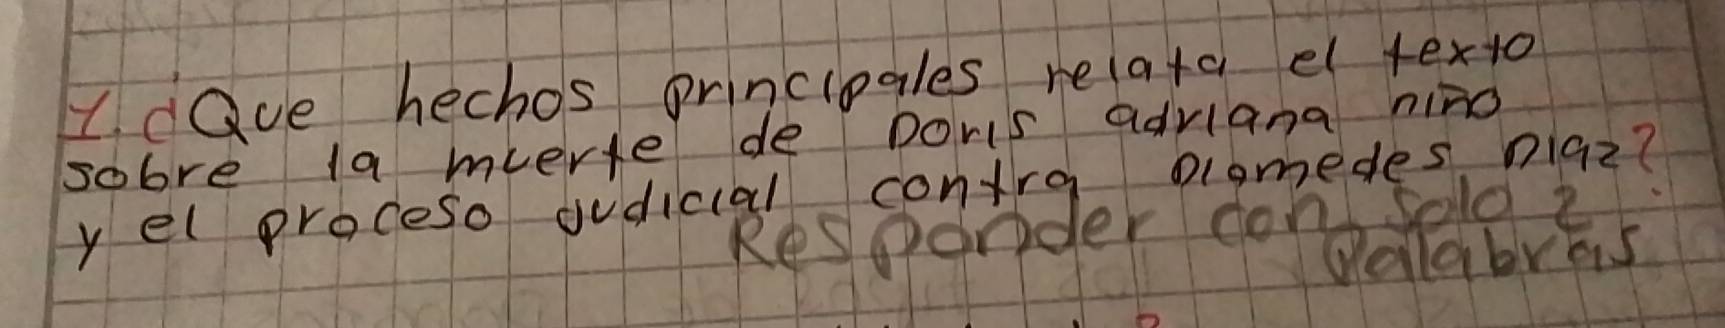 1. ¿Que hechos principales relata el texto
sobre la muerte de Doris adriana niño
y el proceso judicial contra Diomedes Diaz?
Responder con solo 2
Palabras